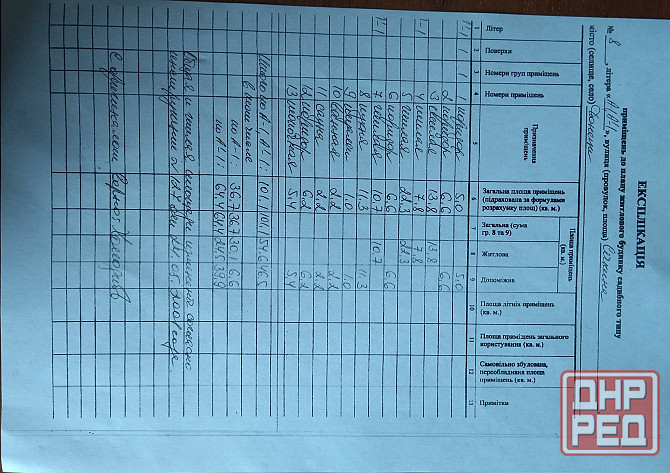 ЕКСПЛІКАЦІЯ
приміщень до плану житлового будинку садибного типу
№ 8, літера «А1-1», вулиця (провулок, площа)
місто (селище, село) Донецк
Літер
Поверхи
Номери груп приміщень
Номери приміщень
Призначення приміщень
Загальна площа приміщень (підрахована за формулами розрахунку площ) (кв. м.)
Площа приміщень (кв. м.)
Загальна (сума гр. 8 та 9)
Житлова
Допоміжна
Площа літніх приміщень (кв. м.)
Площа приміщень загального користування (кв. м.)
Самовільно збудована, переобладнана площа приміщень (кв. м.)
Примітки
1 2 3 4 5 6 7 8 9 10 11 12 13
1 1 1 коридор 5,0 5,0
2 коридор 6,6 6,6
3 жилая 13,8 13,8
4 жилая 7,8 7,8
5 жилая 22,3 22,3
6 коридор 6,6 6,6
7 жилая 10,7 10,7
8 кухня 11,3 11,3
9 1,0 1,0
10 2,2 2,2
11 сауна 2,2 2,2
12 коридор 6,2 6,2
13 5,4 5,4
Всего по А-1, А1-1: 101,1 101,1 54,6 46,5
в том числе
по А-1: 36,7 36,7 30,1 6,6
по А1-1: 64,4 64,4 24,5 39,9
Общая и жилая площади
инструкции №127 от 24.05.2001 года
С оригиналом верно:
ДНР
РЕД